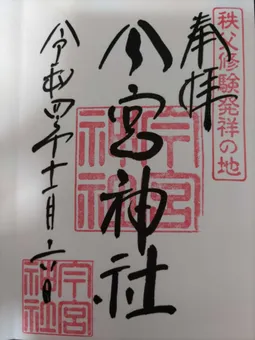 秩父修験発祥の地
奉拝
今宮神社
今宮
神社
令和四年十一月六日
今宮
神社